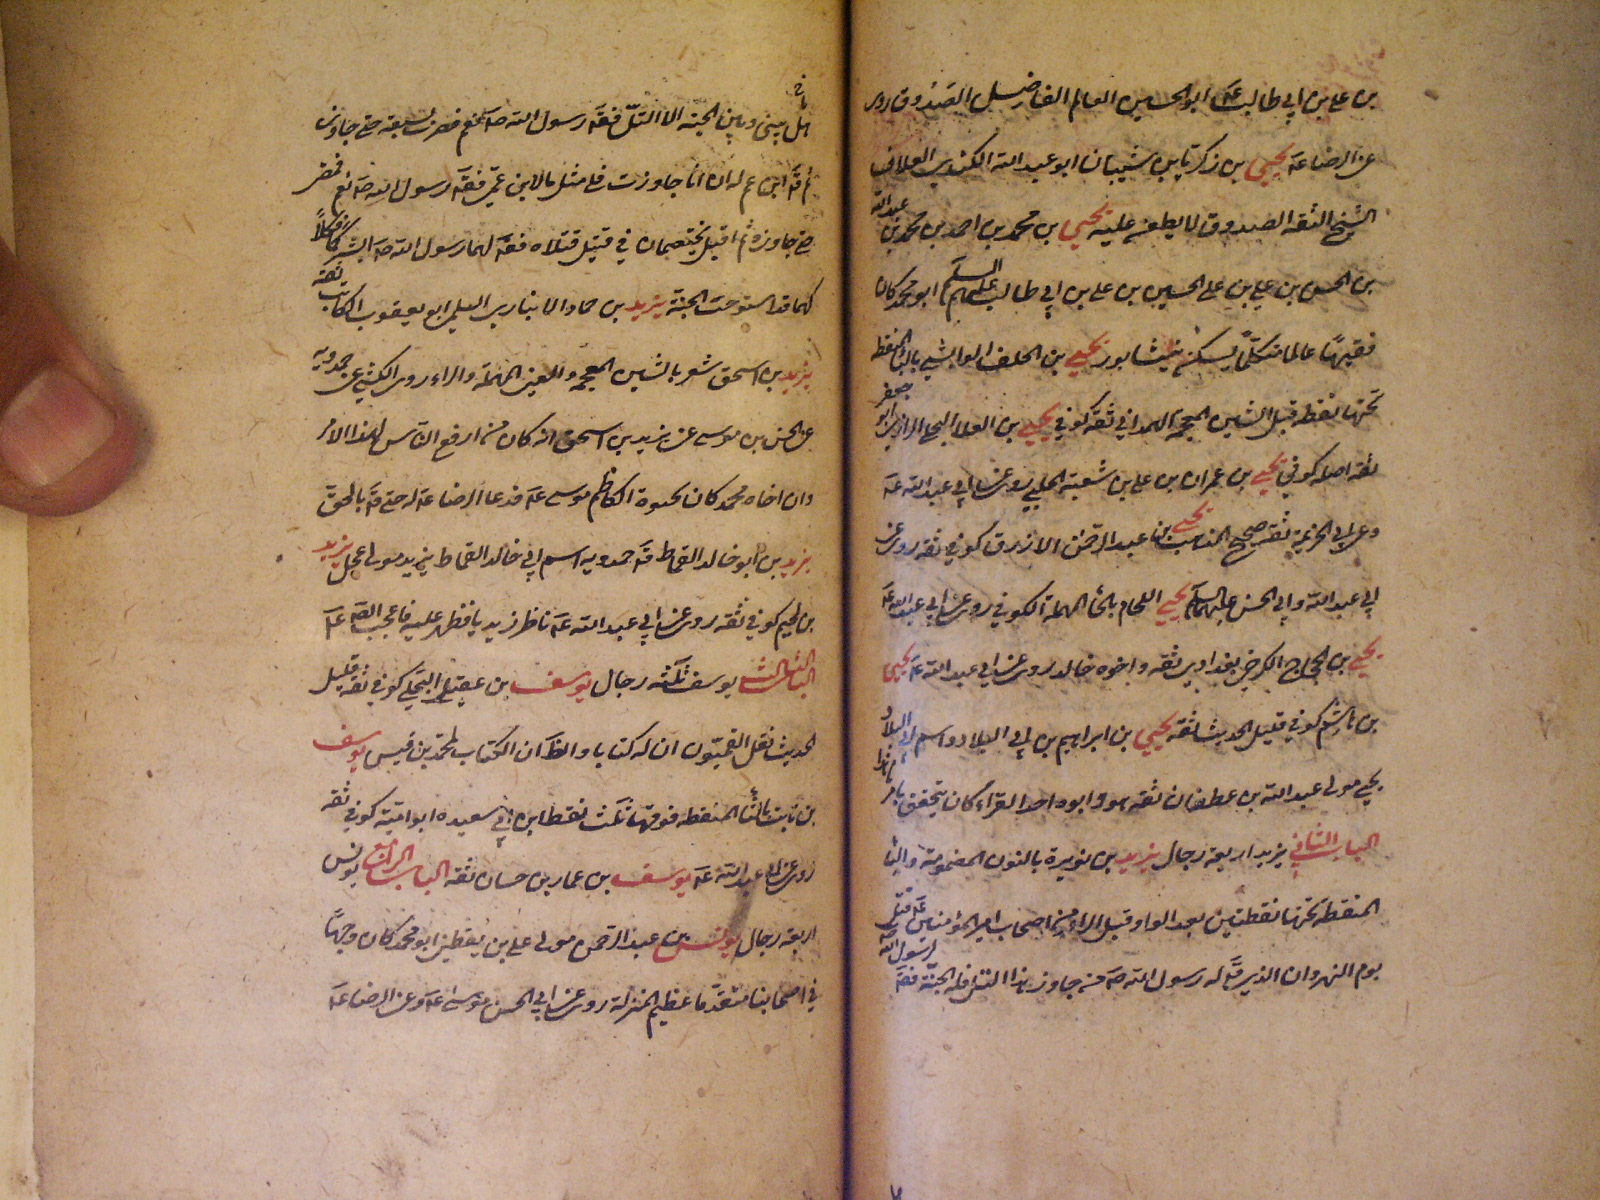 بن علي بن ابي طالب عه ابو الحسين العالم الفاضل الصدوق روى
عن الرضا عه يحيى بن زكريا بن شيبان ابو عبد الله الكندي العلاف
الشيخ الثقه الصدوق لا يطعن عليه يحيى بن محمد بن احمد بن محمد بن عبد الله
بن الحسن بن علي بن علي الحسين بن علي بن ابي طالب عليهم السلم ابو محمد كان
فقيها عالما متكلما يسكن نيشابور يحيى بن الخلف الوابشي بالباء المنقطه
تحتها نقطه قبل الشين المعجمه الهمداني ثقه كوفي يحيى بن العلا البجلي الرازي ابو جعفر
ثقه اصله كوفي يحيى بن عمران بن علي بن شعبة الحلبي روى عن ابي عبد الله عه
ثقه صحيح المذهب يحيى بن عبد الرحمن الازرق كوفي ثقه روى عن
ابي عبد الله وابي الحسن عليهما السلم يحيى اللحام بالحاء المهملة الكوفي روى عن ابي عبد الله عه
يحيى بن الحجاج الكرخي بغدادي ثقه واخوه خالد روى عن ابي عبد الله عه يحيى
بن هاشم كوفي قليل الحديث ثقة يحيى بن ابراهيم بن ابي البلاد واسم ابي البلاد
يحيى مولى عبد الله بن عطفان ثقه هو وابوه احد القراء كان يتحقق بامرنا هذا
الباب الثاني يزيد اربعة رجال يزيد بن نويرة بالنون المضمومة والياء
المنقطه تحتها نقطتين بعد الواو قبل الراء من اصحاب امير المؤمنين عه قتل
يوم النهروان الذي قه له رسول الله صه من جاوز هذا التل فله الجنة فقه لرسول الله
هل بيني وبين الجنة الا التل فقه رسول الله صه نعم فضرب بسيفه حتى جاوزه
ثم قه ابن عم له ان انا جاوزت فلي مثل ما لابن عمي فقه رسول الله صه نعم فمضى
حتى جاوزه ثم اقبل يختصمان في قتيل قتلاه فقه لهما رسول الله صه ابشرا فكلا
كما قد استوجب الجنة يزيد بن حماد الانباري السلمي ابو يعقوب الكاتب ثقه
يزيد بن اسحق شعر بالشين المعجمه والعين المهملة والراء روى الكشي عن حمدويه
عن الحسن بن موسى عن يزيد بن اسحق انه كان من ارفع الناس لهذا الامر
وان اخاه محمد كان الكاظم موسى عه فدعا الرضا عه له حتى قه بالحق
يزيد بن ابو خالد القماط قه حمدويه اسم ابي خالد القماط يزيد مولى عجل يزيد
كوفي ثقه روى عن ابي عبد الله عه ناظر زيديا فظهر عليه فاعجب الصه عه
الباب الثالث يوسف ثلثه رجال يوسف بن عقيل البجلي كوفي ثقه قليل
الحديث نقل القميون ان له كتابا والظ ان الكتاب لمحمد بن قيس يوسف
بن ثابت بالثاء المنقطه فوقها ثلث نقط ابن ابي سعيده ابو امية كوفي ثقه
روى عن ابي عبد الله عه يوسف بن عمار بن حسان ثقه الباب الرابع يونس
اربعه رجال يونس بن عبد الرحمن مولى علي بن يقطين ابو محمد كان وجها
في اصحابنا متقدما عظيم المنزلة روى عن ابي الحسن موسى عه وعن الرضا عه